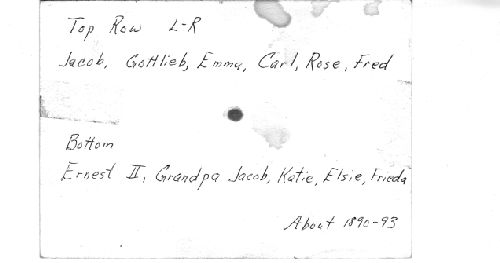 Top Row L-R
Jacob, Gottlieb, Emma, Carl, Rose, Fred
Bottom
Ernest II, Grandpa Jacob, Katie, Elsie, Frieda
About 1890-93